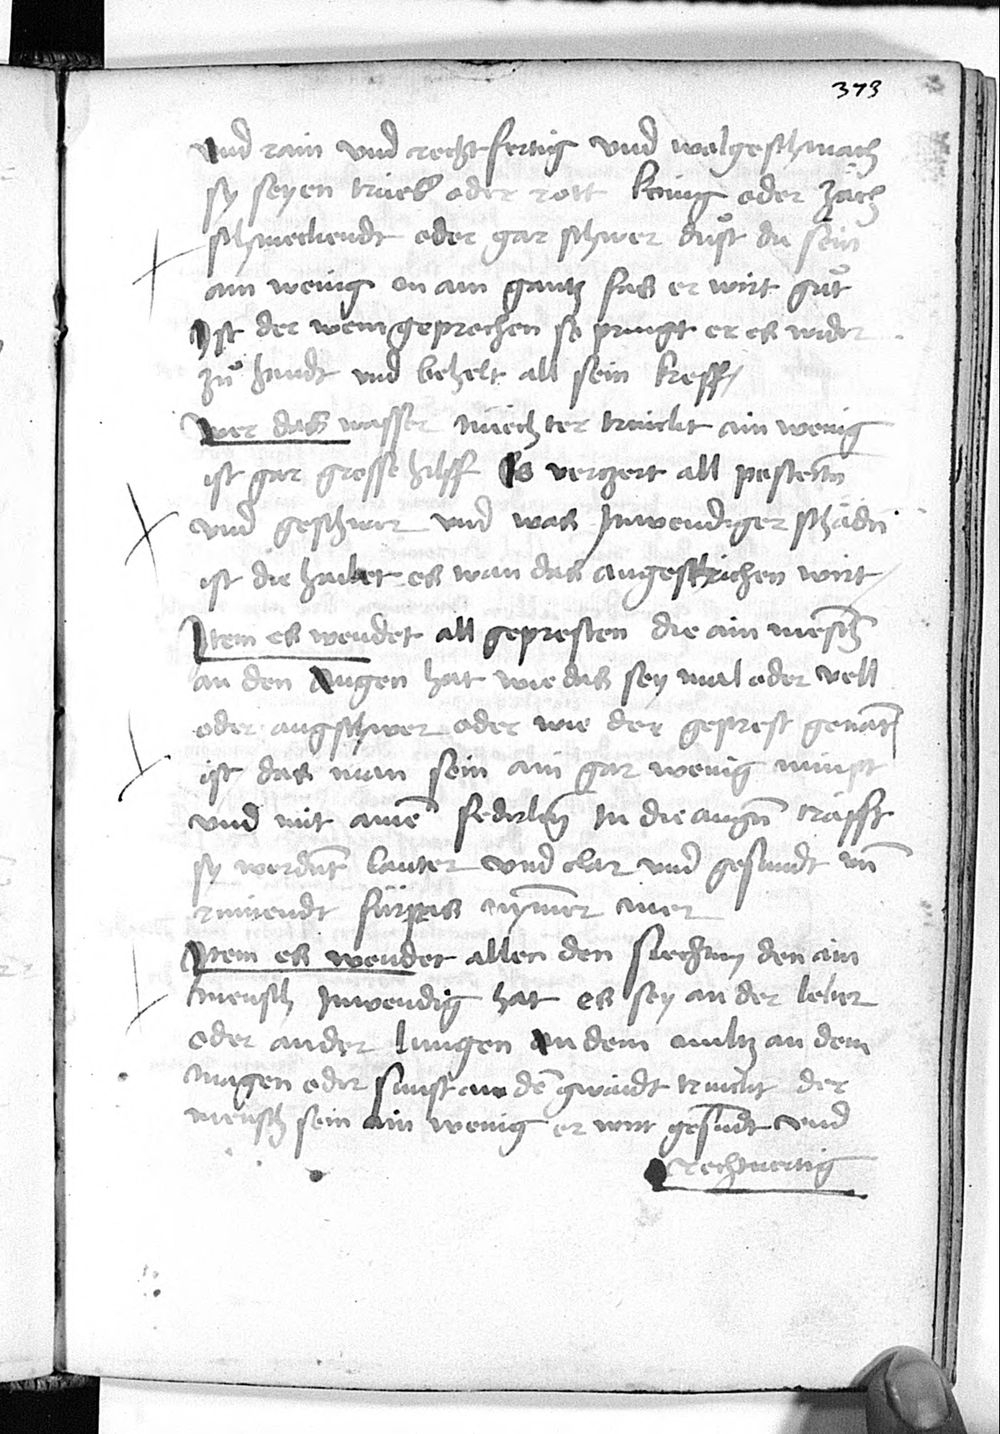 373
und rain und rechtfertig und wolgeschmach
sy seyen trieb oder rott kenig oder zäch
schmeckendt oder gar schwer dust du sein
ain wenig in ain gantz fas er wirt gůt
Ist der wein geprochen so pringt er es wider
zů handt und behelt all sein krefft
Wer das wasser niechter trinckt ain wenig
ist gar grosse hilff Es verzert all pesten
und geschwer und was Inwendiger schädn
ist die hailet es wan das angestrichen wirt
Item es wendet all gepresten die ain mensch
an den Augen hat wie das sey mal oder vell
oder augschwer oder wie der geprest genat
ist das man sein ain gar wenig nimpt
und mit aine federlin In die augn träpfft
sy werdnt lauter und clar und gesundt un
rinnendt fürpas nymer mer
Item es wendet allen den siechtum den ain
mensch Inwendig hat es sey an der leber
oder an der lungen An dem miltz an dem
magen oder sunst an de gwaidt trinckt der
mensch sein ain wenig er wirt gesundt und
rechtvertig